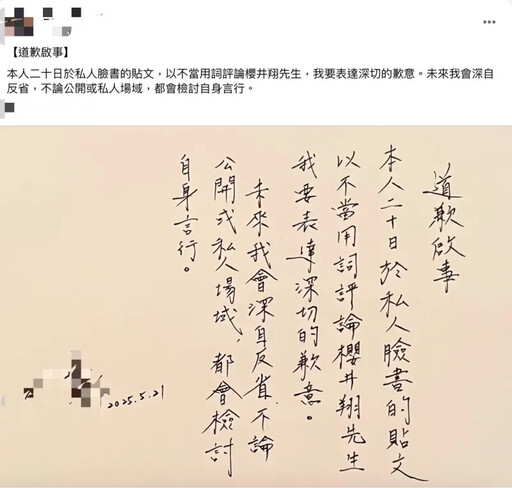 【道歉啟事】
本人二十日於私人臉書的貼文，以不當用詞評論櫻井翔先生，我要表達深切的歉意。未來我會深自
反省，不論公開或私人場域，都會檢討自身言行。
道歉啟事
本人二十日於私人臉書的貼文
以不當用詞評論櫻井翔先生
我要表達深切的歉意。
未來我會深自反省，不論
公開或私人場域，都會檢討
自身言行。
2025.5.21